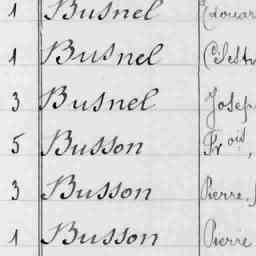 1 Busnel Edouar
1 Busnel Célest
3 Busnel Josep
5 Busson Frois,
3 Busson Pierre
1 Busson Pierre